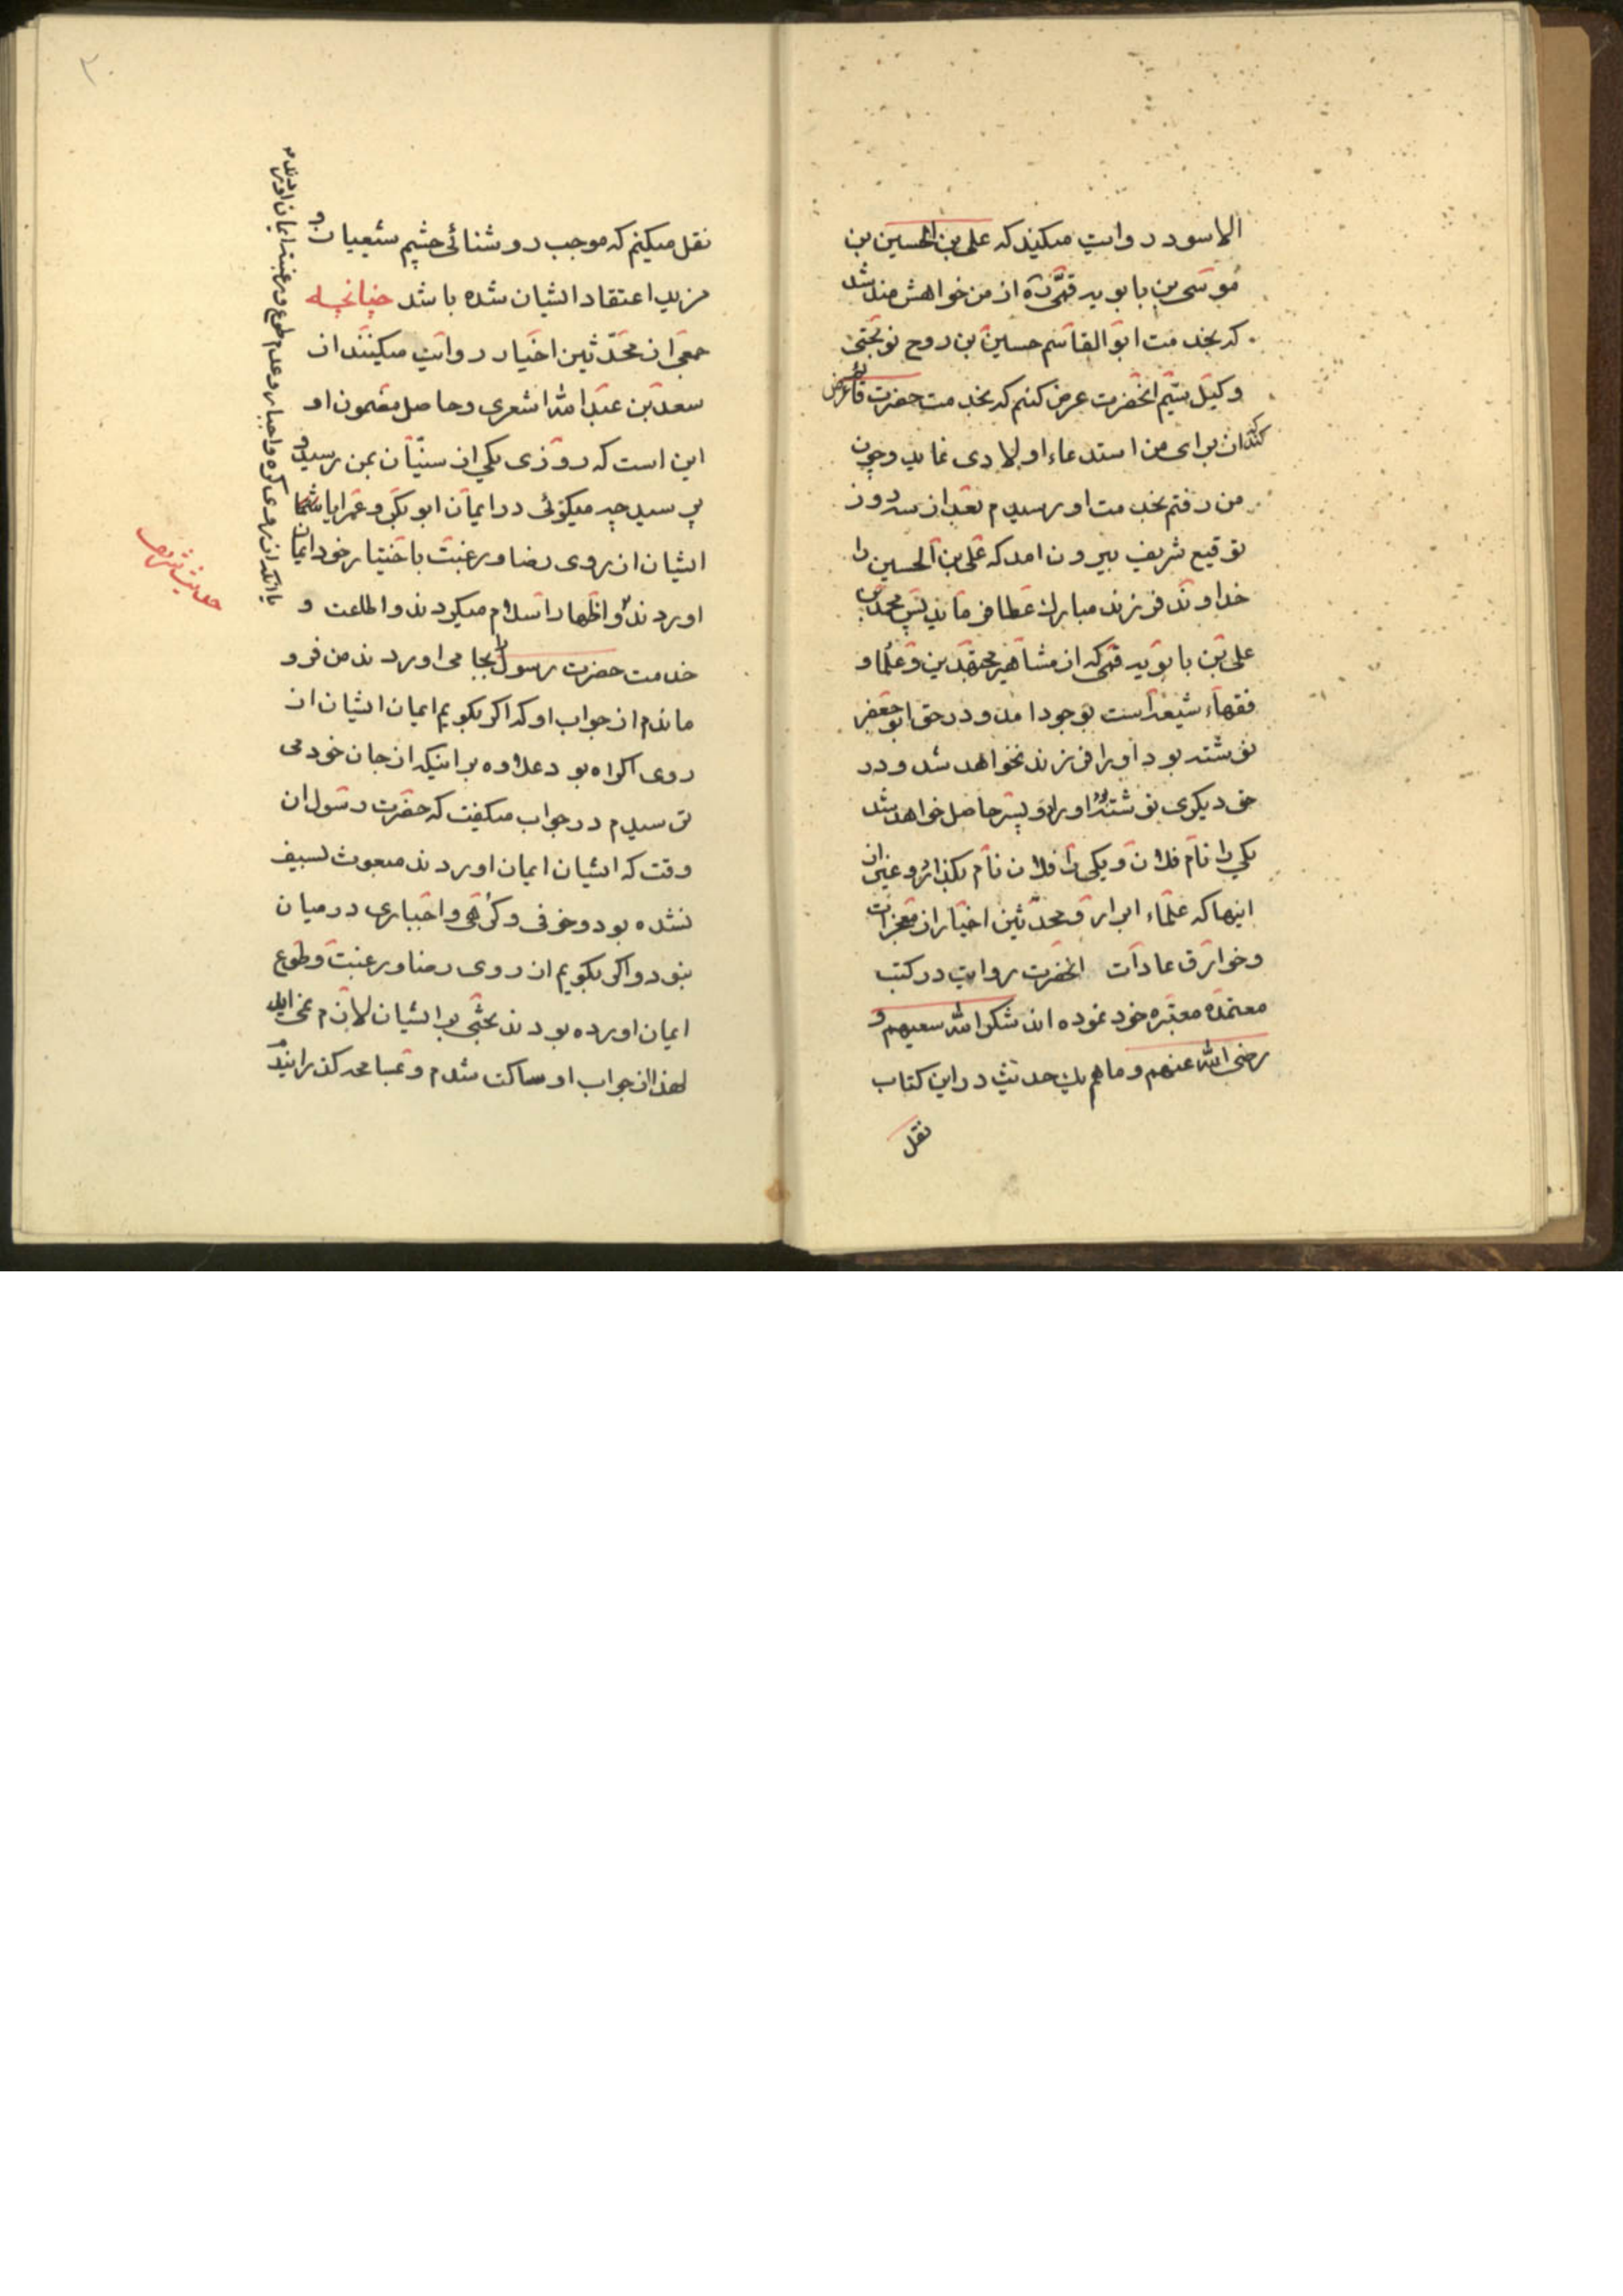 الاسود روایت میکند که علی بن الحسین بن
موسی بن بابویه قمی ره از من خواهش مند شد
که بخدمت ابو القاسم حسین بن روح نوبختی
وکیل سیّم انحضرت عرض کنم که بخدمت حضرت قائم عرض
کند که ان برای من استدعاء اولادی نماید و چون
من رفتم بخدمت او رسیدم بعد از سه روز
توقیع شریف بیرون امد که علی بن الحسین را
خداوند فرزند مبارک عطا فرماید پس محمد بن
علی بن بابویه قمی که از مشاهیر مجتهدین و علما و
فقهاء شیعه است بوجود امد و در حق ابو جعفر
نوشته بود او را فرزند نخواهد شد و در
حق دیکری نوشته بود او را دو پسر حاصل خواهد شد
یکی را نام فلان و یکی را فلان نام بکذارد و غیر از
اینها که علماء ابرار و محدثین اخیار از معجزات
و خوارق عادات انحضرت روایت در کتب
معتمده معتبره خود نموده اند شکر الله سعیهم و
رضی الله عنهم و ما هم یک حدیث در این کتاب
نقل
٢
نقل میکنم که موجب روشنائی چشم شیعیان و
مزید اعتقاد ایشان شده باشد چنانچه
جمعی از محدّثین اخیار روایت میکنند از
سعد بن عبد الله اشعری و حاصل مضمون او
این است که روزی یکی از سنیّان بمن رسید و
پرسید چه میکوئی در ایمان ابوبکر و عمر ایا شما
ایشان از روی رضا و رغبت باختیار خود ایمان
اوردند و اظهار اسلام میکردند و اطاعت و
خدمت حضرت رسول را بجا می اوردند من فرو
ماندم از جواب او که اکر بکویم ایمان ایشان از
روی اکراه بود علاوه بر اینکه از جان خود می
ترسیدم در جواب میکفت که حضرت رسول ان
وقت که ایشان ایمان اوردند مبعوث بسیف
نشده بود و خوفی و کرهی و اجباری در میان
نبود و اکر بکویم از روی رضا و رغبت و طوع
ایمان اورده بودند بحثی بر ایشان لازم نمی اید
لهذا از جواب او ساکت شدم و بمسامحه کذرانیدم
یا انکه از روی کره و اجبار و عدم طوع و رغبت ایمان اوردند
حدیث شریف